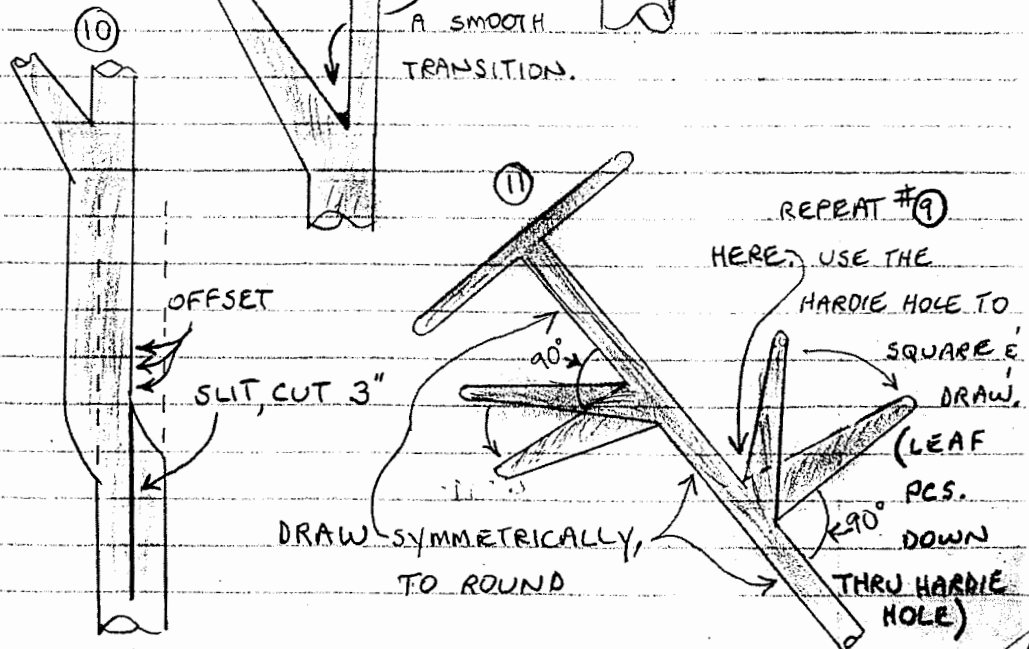 10
A SMOOTH
TRANSITION.
OFFSET
SLIT, CUT 3"
11
REPEAT #9
HERE. USE THE
HARDIE HOLE TO
SQUARE &
DRAW.
(LEAF
PCS.
DOWN
THRU HARDIE
HOLE)
90°
90°
DRAW SYMMETRICALLY,
TO ROUND